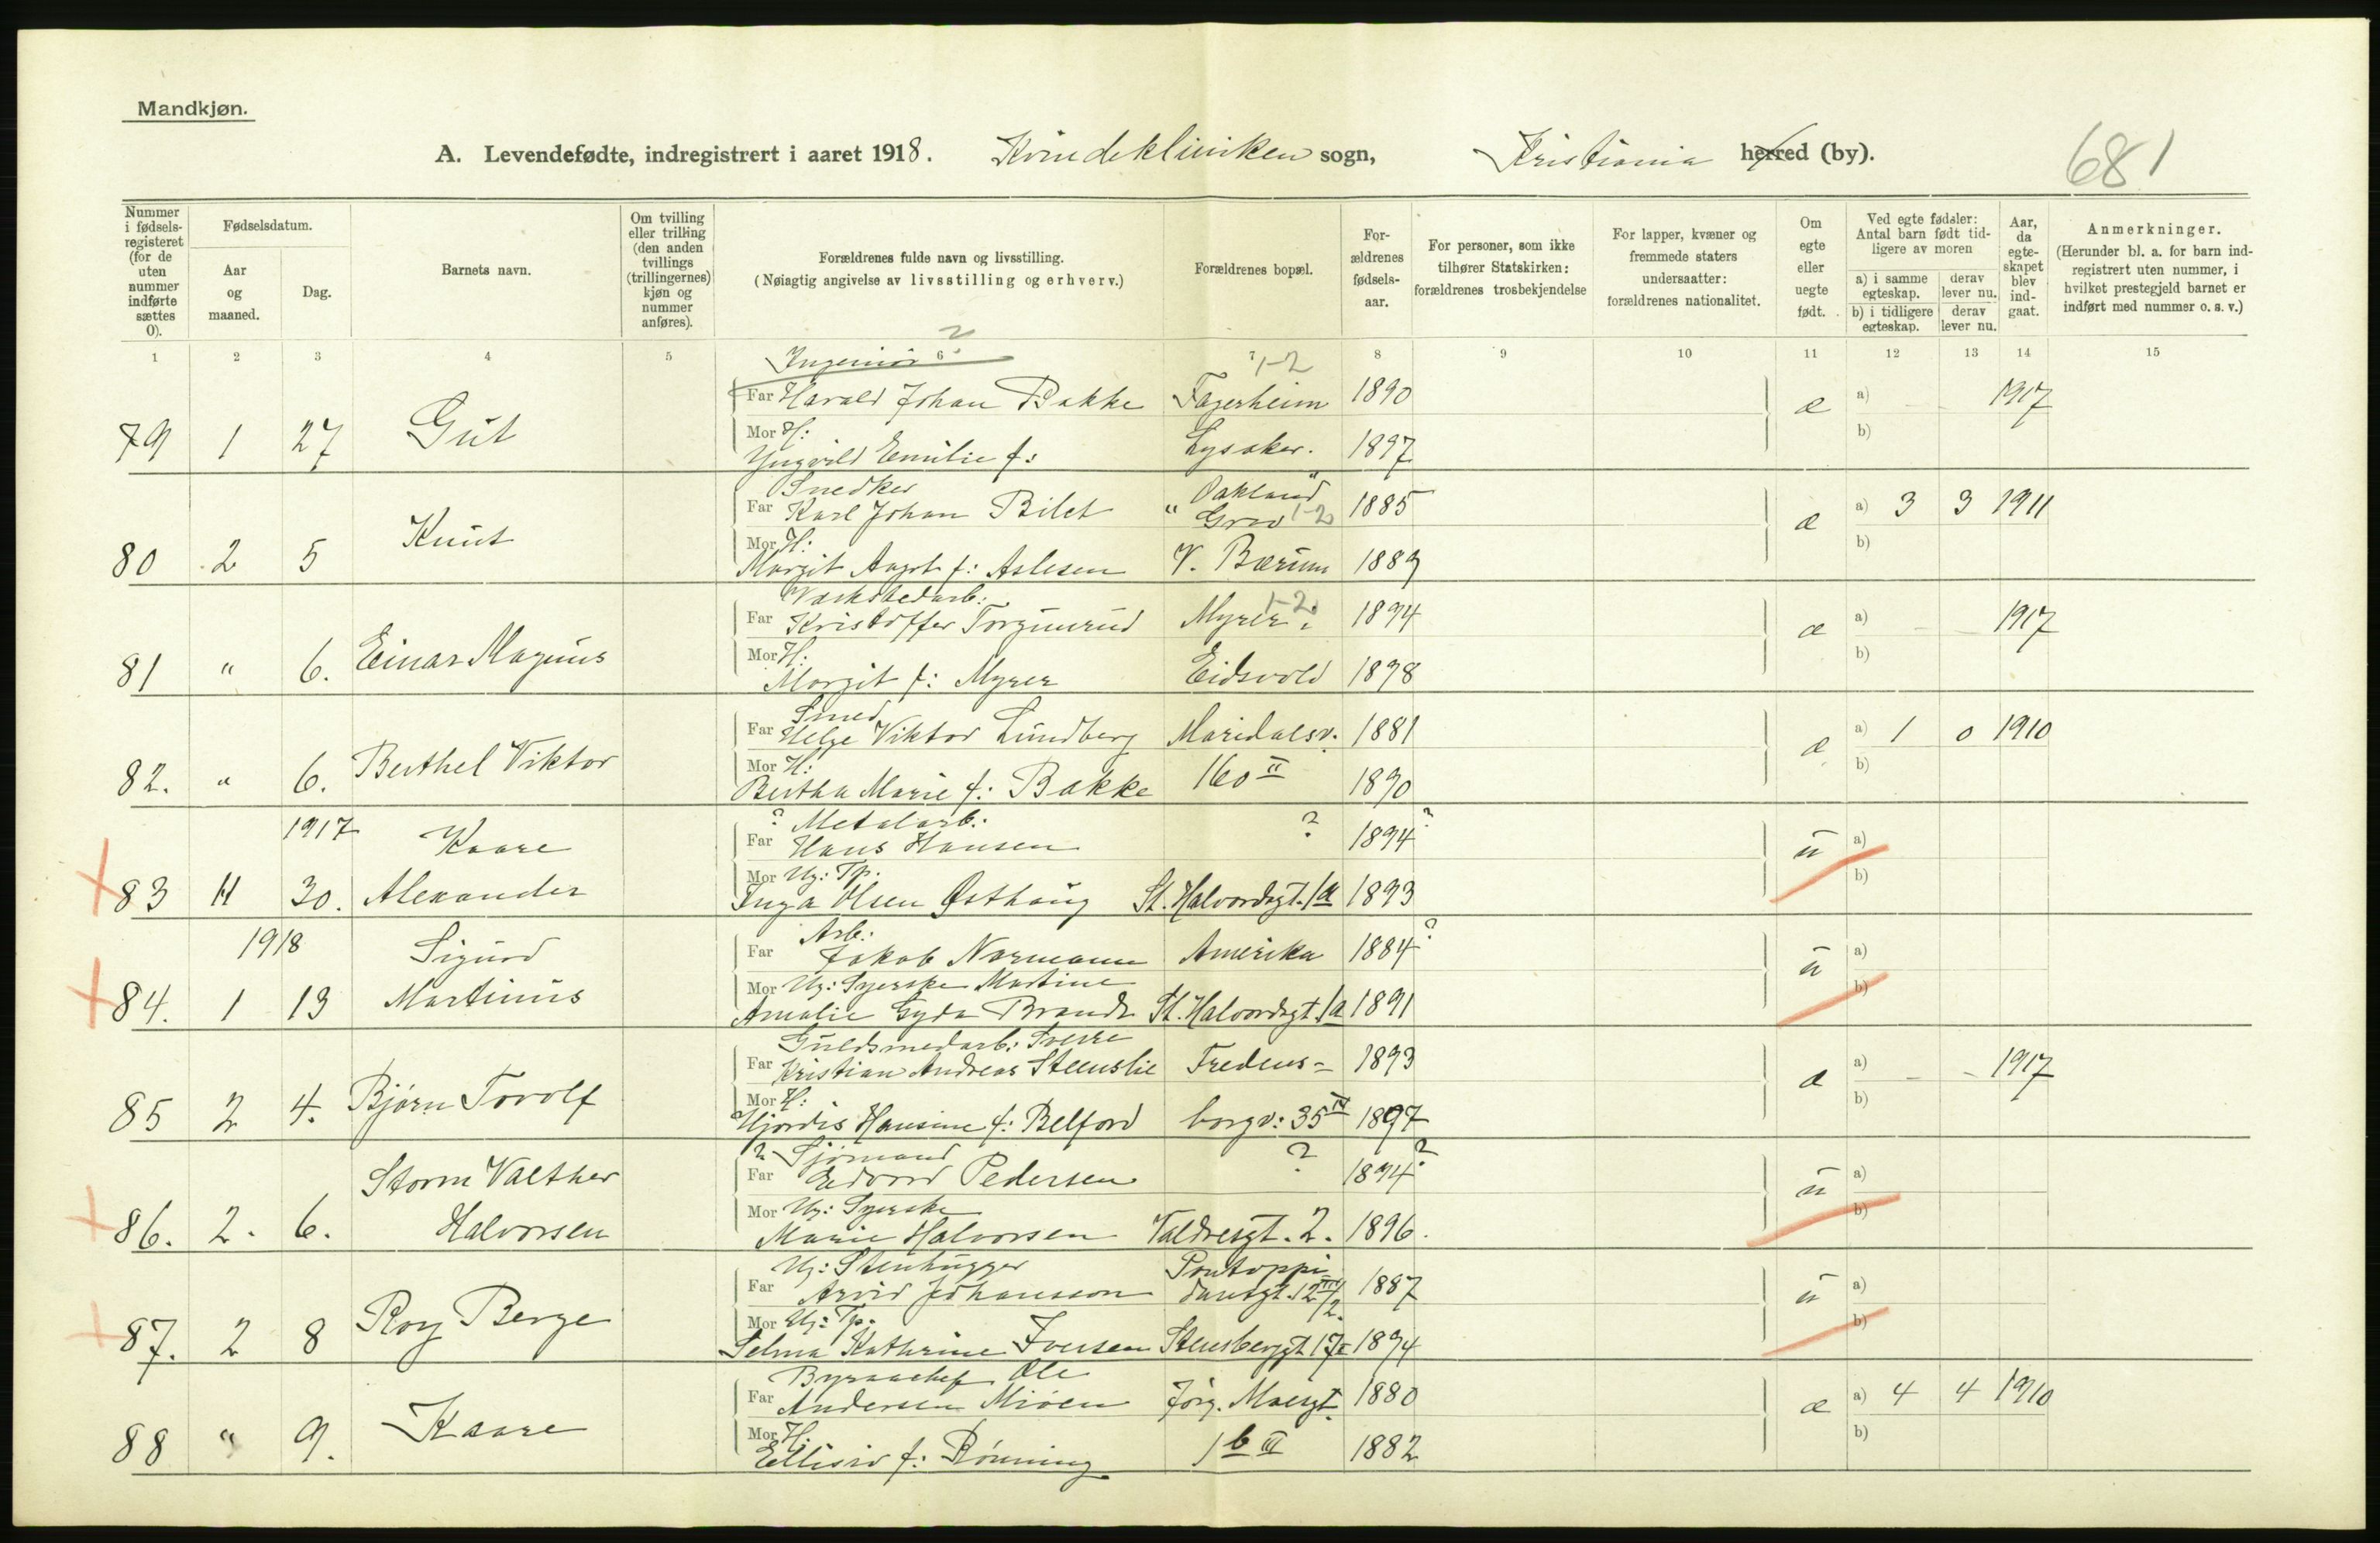 Mandkjøn.
A. Levendefødte, indregistrert i aaret 1918. Kvindeklinikken sogn, Kristiania herred (by). 681
Nummer i fødsels-registeret (for de uten nummer indførte sættes 0).
Fødselsdatum.
Aar og maaned.
Dag.
Barnets navn.
Om tvilling eller trilling (den anden tvillings (trillingernes) kjøn og nummer anføres).
Forældrenes fulde navn og livsstilling.
(Nøiagtig angivelse av livsstilling og erhverv.)
Forældrenes bopæl.
For-ældrenes fødsels-aar.
For personer, som ikke tilhører Statskirken: forældrenes trosbekjendelse
For lapper, kvæner og fremmede staters undersaatter: forældrenes nationalitet.
Om egte eller uegte født.
Ved egte fødsler: Antal barn født tid-ligere av moren
a) i samme egteskap.
derav lever nu.
b) i tidligere egteskap.
derav lever nu.
Aar, da egte-skapet blev ind-gaat.
Anmerkninger.
(Herunder bl. a. for barn ind-registrert uten nummer, i hvilket prestegjeld barnet er indført med nummer o. s. v.)
1 2 3 4 5 6 7 8 9 10 11 12 13 14 15
Ingeniør ? 1-2
Far Harald Johan Bakke Fagerheim 1890 æ a) - - 1917
79 1 27 Gut
Mor H: Lysaker. 1897 b)
Yngvild Emilie f:
Snedker "Oakland"
Far Karl Johan Bilet " Grav 1-2 1885 æ a) 3 3 1911
80 2 5 Knut
Mor H: b)
Margit Aagot f: Aslesen V. Bærum 1889
Verkstedarb: 1-2
Far Kristoffer Torgunrud Myrer. 1894 æ a) - - 1917
81 " 6. Einar Magnus
Mor H: b)
Margit f: Myrer Eidsvold 1898
Smed
Far Helge Viktor Lundberg Maridalsv. 1881 æ a) 1 0 1910
82. " 6. Berthel Viktor
Mor H: 160 II b)
Bertha Marie f: Bakke 1890
1917 ? Metalarb: ?
Far Hans Hansen 1894 ? u a)
83 11 30. Kaare Alexander
Mor Ug: Tp. b)
Inga Olsen Østhaug St. Halvordsgt. 1a 1893
1918 Arb:
Far Jakob Normann Amerika 1884 ? u a)
84. 1 13 Sigurd Martinius
Mor Ug: Syerske Martine b)
Amalie Gyda Brandt St. Halvordsgt. 1a 1891
Guldsmedarb: Sverre
Far Kristian Andreas Steenslie Fredens- 1893 æ a) - - 1917
85 2 4. Bjørn Torolf
Mor H: b)
Hjørdis Hansine f: Belford borgv: 35 IV 1897
? Sjømand ?
Far Edvard Pedersen 1894 ? u a)
86. 2. 6. Storm Valther Halvorsen
Mor Ug: Syerske b)
Marie Halvorsen Valdresgt. 2. 1896.
Ug: Stenhugger Pontoppi
Far Arvid Johansson dansgt. 12 III/2. 1887 u a)
87. 2 8 Roy Berge
Mor Ug: Tp. b)
Selma Kathrine Iversen Stensberggt 17 I 1894
Byraachef Ole
Far Andersen Miøen Jørg. Moesgt. 1880 æ a) 4 4 1910
88 " 9. Kaare
Mor H. 1 b III 1882 b)
Ellisiv f: Rønning